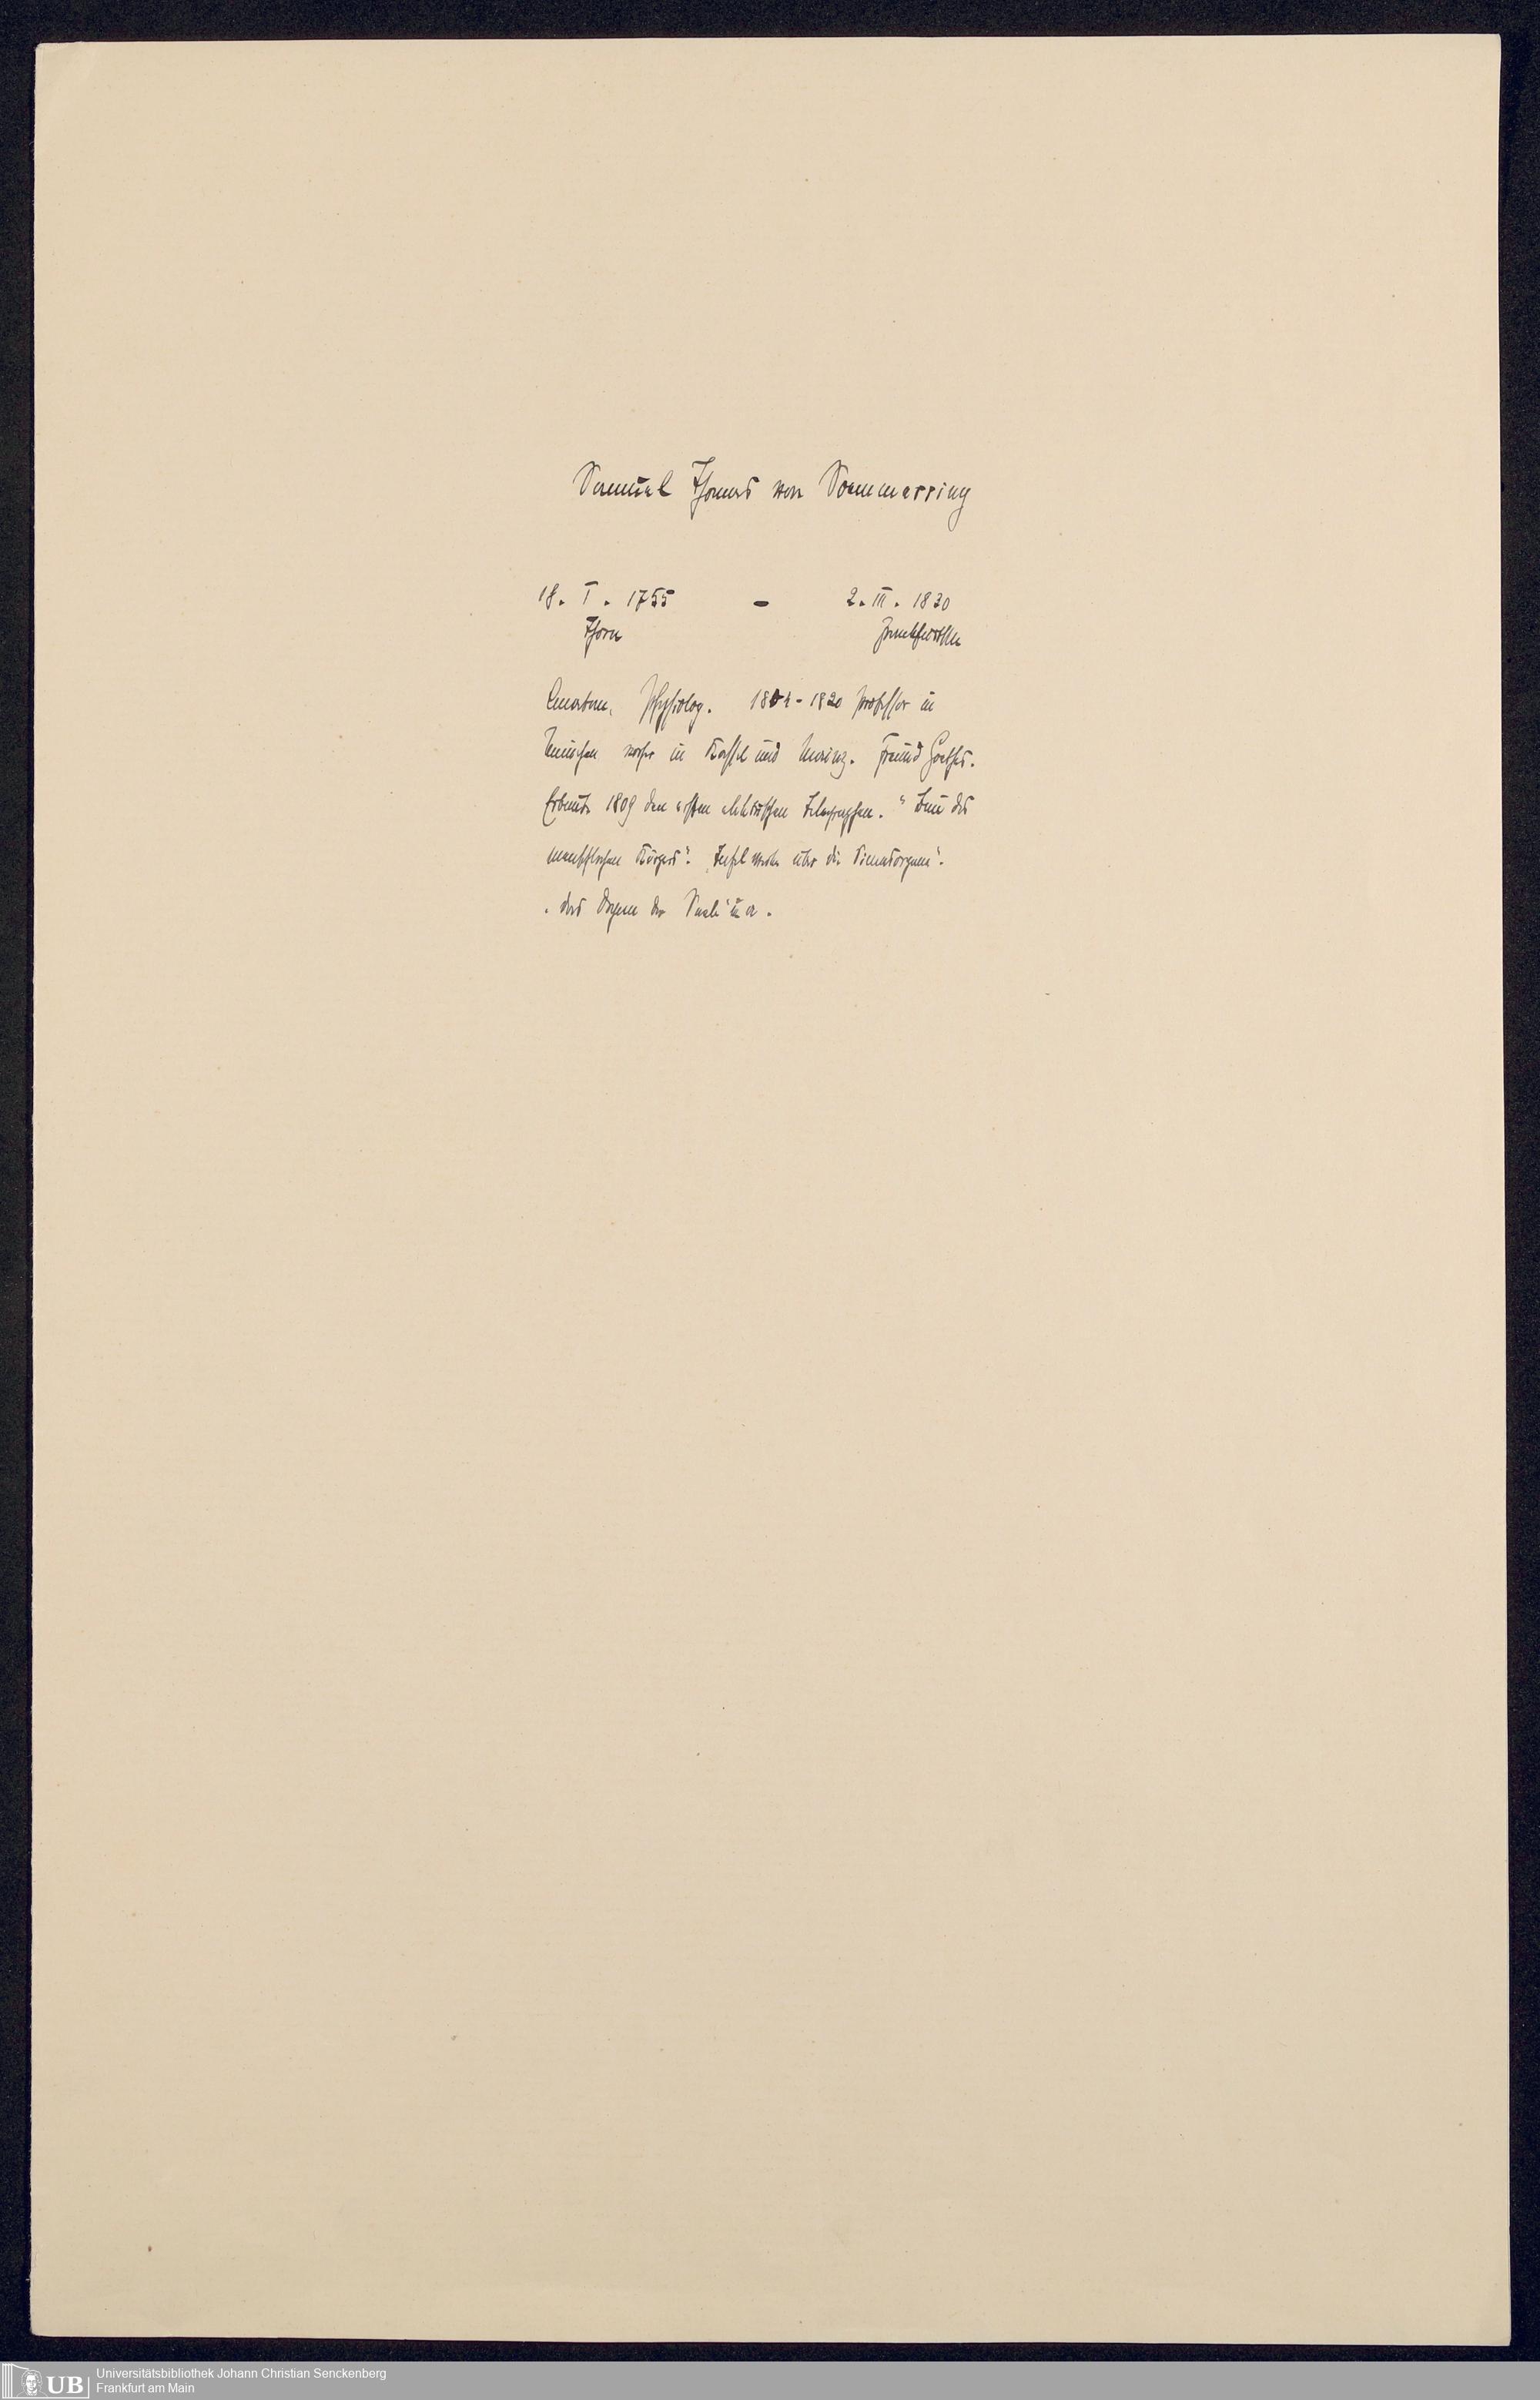 Samuel Thomas von Soemmerring
18. I. 1755 - 2. III. 1830
Thorn Frankfurt/M
Anatom, Physiolog. 1804-1820 Professor in
München vorher in Kassel und Mainz. Freund Goethes.
Erbaute 1809 den ersten elektrischen Telegraphen. "Bau des
menschlichen Körpers". "Tafelwerke über die Sinnesorgane".
"das Organ der Seele" u a.
UB Universitätsbibliothek Johann Christian Senckenberg
Frankfurt am Main